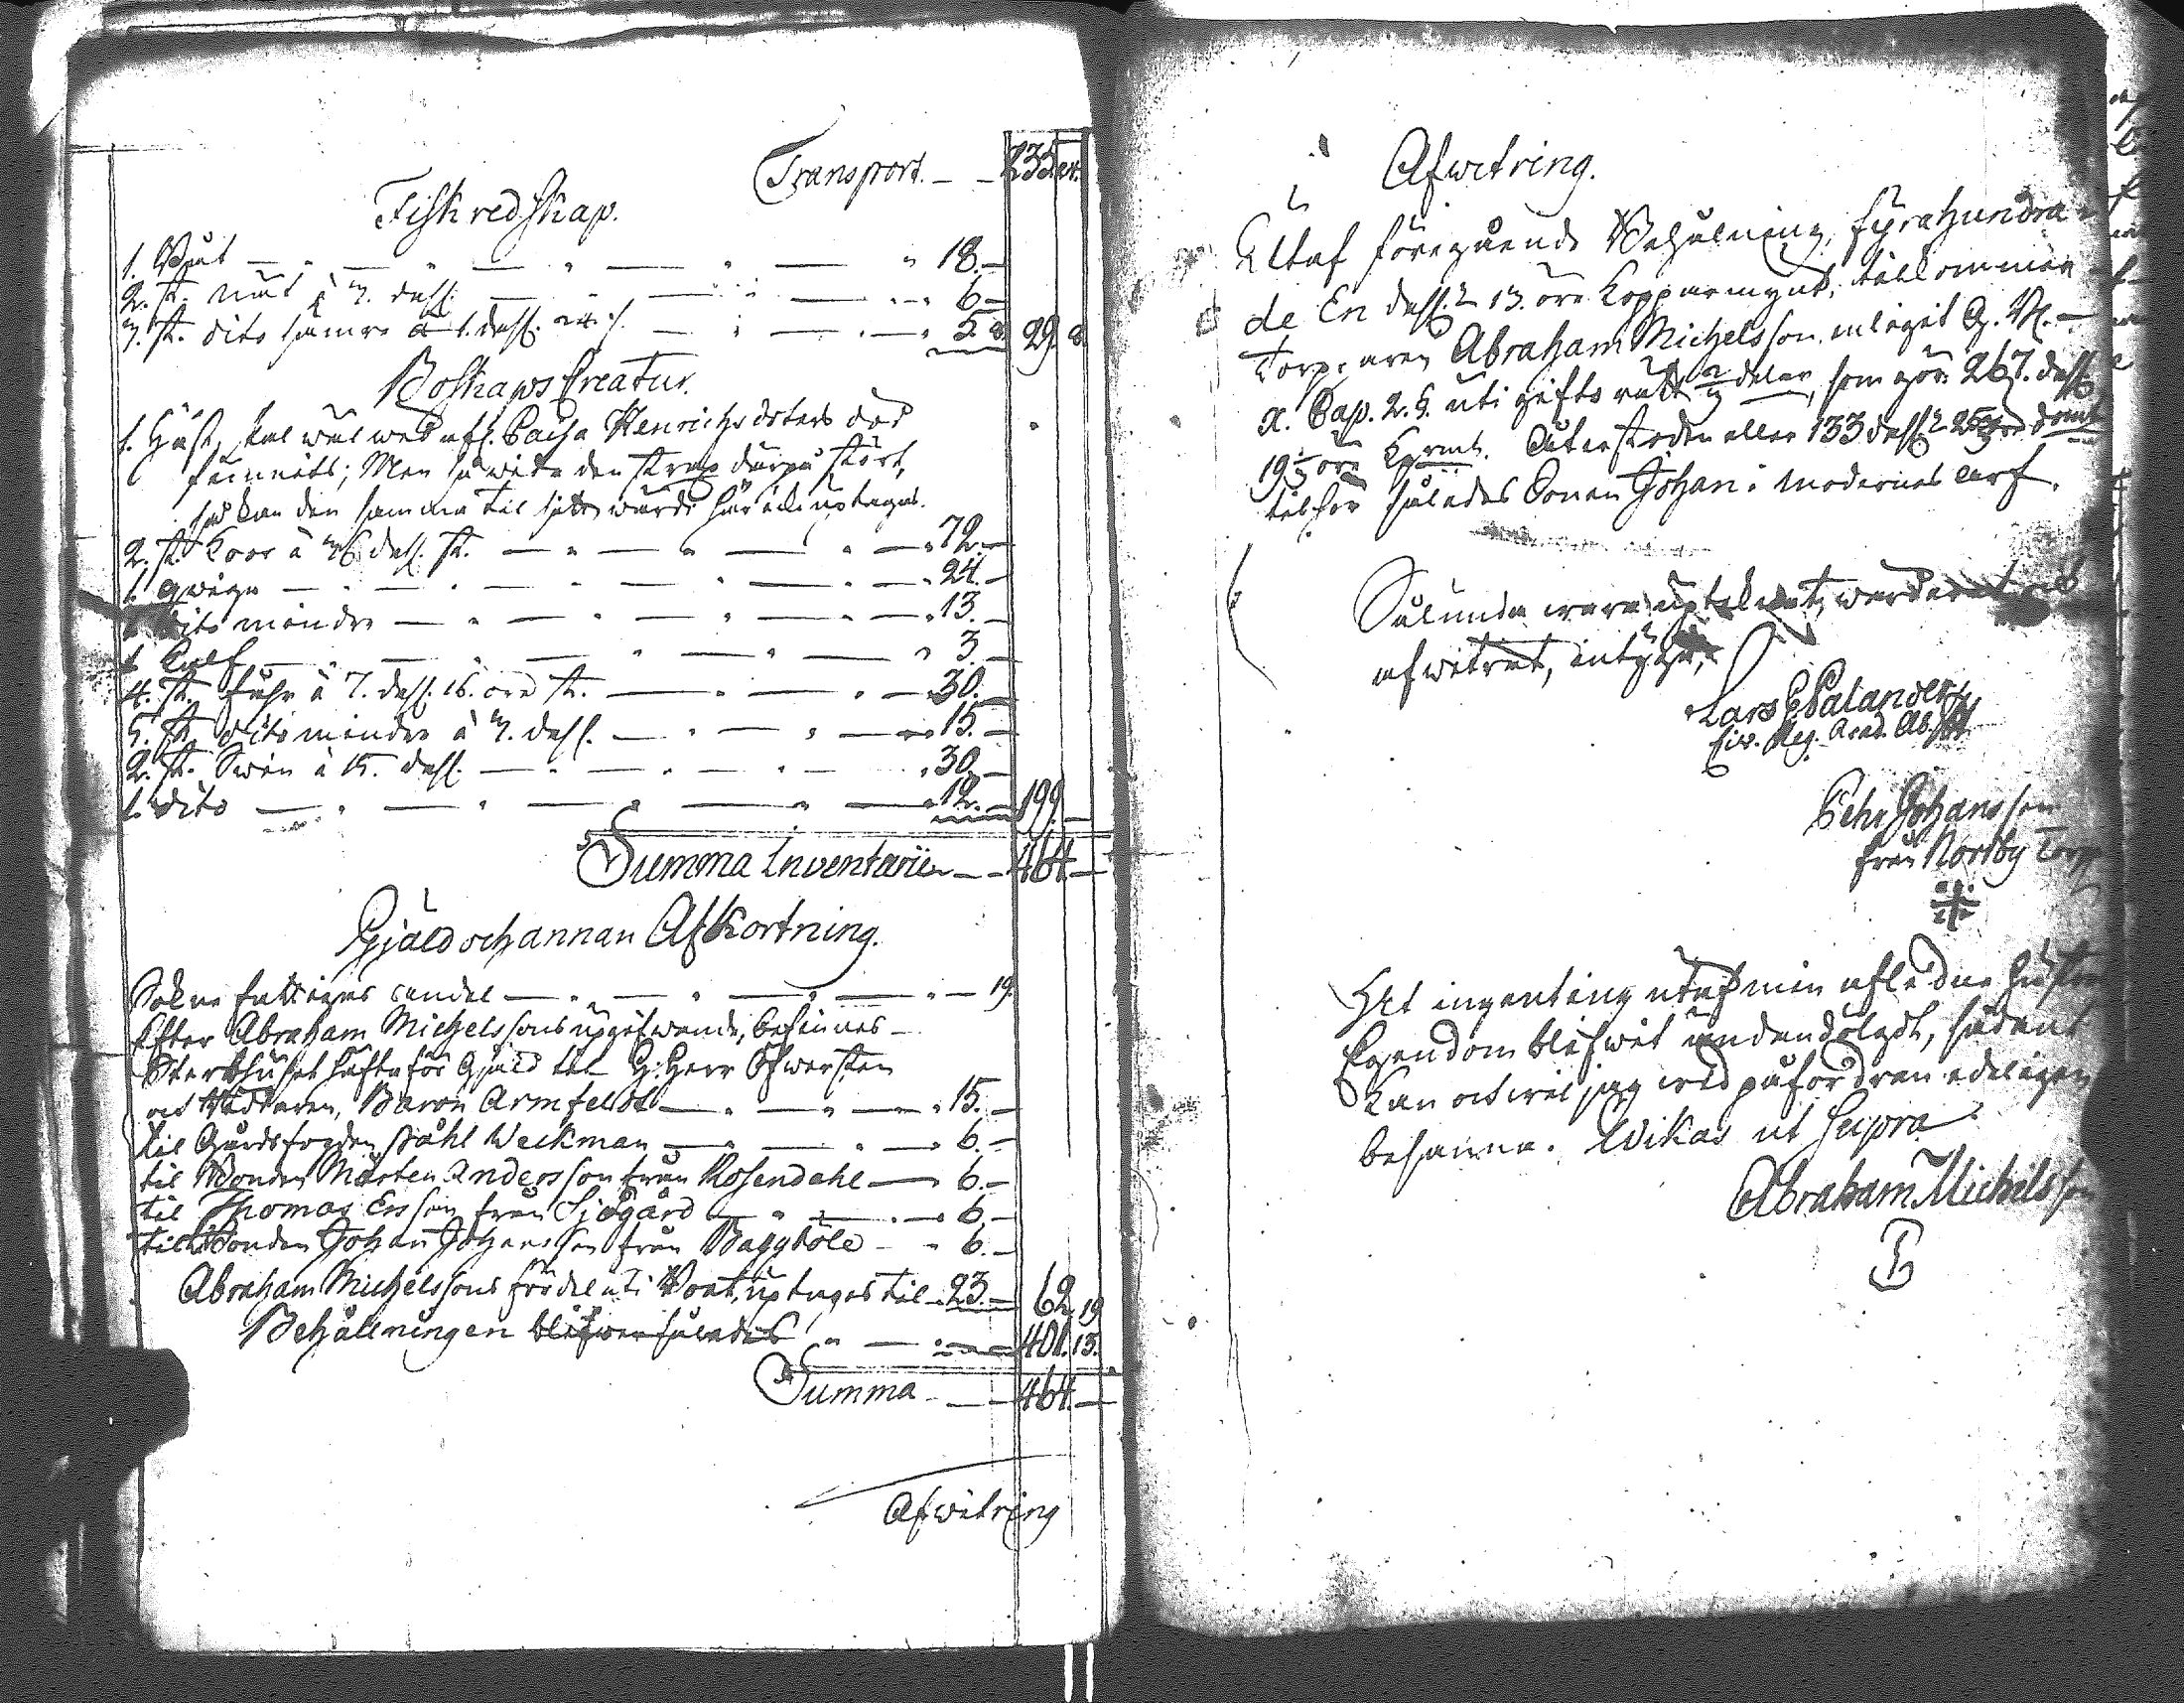 Transport. — — 235. 24.
Fiskredskap.
1. Båt — " — " — " — " — " 18. —
2. st. nät à 3. dal. — " — " — " 6 —
3. st. dito sämre à 1. dal. 24 :/. — " — " — " 5. 8. 29. 8.
Boskaps Creatur.
1. Häst, skal wäl wid afl. Caisa Henrichsdoters död
funnits; Men såwida den strax därpå stört,
så kan den samma til sitt wärde här icke uptagas.
2. st. Koor à 36 dal. st. — " — " — " — " 72. —
1. qwiga — " — " — " — " — " 24. —
1 dito mindre — " — " — " — " — " 13. —
1 Kalf — " — " — " — " — " 3. —
4. st. Fåhr à 7. dal. 16. öre st. — " — " — " 30. —
5. st. dito mindre à 3. dal. — " — " — " 15. —
2. st. Swin à 15. dal. — " — " — " — " 30. —
1. dito — " — " — " — " — " 12. — 199. —
Summa Inventarii — — 464 —
Gjäld och annan Afkortning.
Sokne fattigas andel — " — " — " — " — 19.
Efter Abraham Michelssons upgifwande, befinnes
Sterbhuset häfta för Gjäld til H: Herr Öfwersten
och Riddaren, Baron Armfeldt — " — " — " 15. —
til Gårdsfogden Påhl Weckman — " — " — 6. —
til Bonden Mårten Andersson från Rosendahl — 6. —
til Thomas Ersson från Sjögård — " — " — 6. —
til Bonden Johan Johansson från Baggböle — " 6. —
Abraham Michelssons fördel uti Boet, uptages til 23. — 62. 19
Behållningen blifwer således " — " — 401. 13.
Summa — — 464. —
Afwitring
Afwitring.
Utaf föregående Behålning, fyrahundra
de En dal. 13. öre Kopparmynt, tillkommer
Torparen Abraham Michelsson enligit G. B.
X. Cap. 2. §. uti giftorätt 2/3 delar, som gör 267. dal.
19 2/3 öre Kprmt. Återstoden eller 133 dal. 25 1/3 öre dito mt
tilhör således Sonen Johan i modernes arf.
Sålunda wara uptecknat, wärderat och
afwitrat, intyga,
Lars E Palander
Civ. Reg. Acad. Ab.
Pehr Johansson
från Norrby Torp
At ingenting utaf min afledne hustrus
Egendom blifwit undandölgdt, sådant
kan och wil jag wid påfordran edeligen
besanna. Wikas ut Supra
Abraham Michelsson